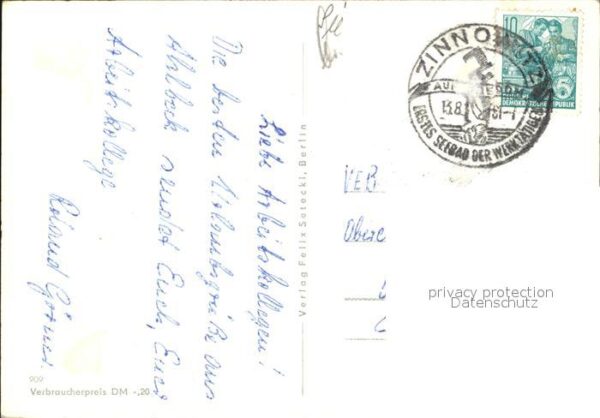 Liebe Arbeitskollegen!
Die besten Urlaubsgrüße aus
Ahlbeck sendet Euch, Euer
Arbeitskollege
Roland
Verlag Felix Setecki, Berlin
909
Verbraucherpreis DM -,20
ZINNOWITZ
AUF USEDOM
13.8.
ERSTES SEEBAD DER WERKTÄTIGEN
10
5
DEMOKRATISCHE REPUBLIK
VEB
privacy protection
Datenschutz